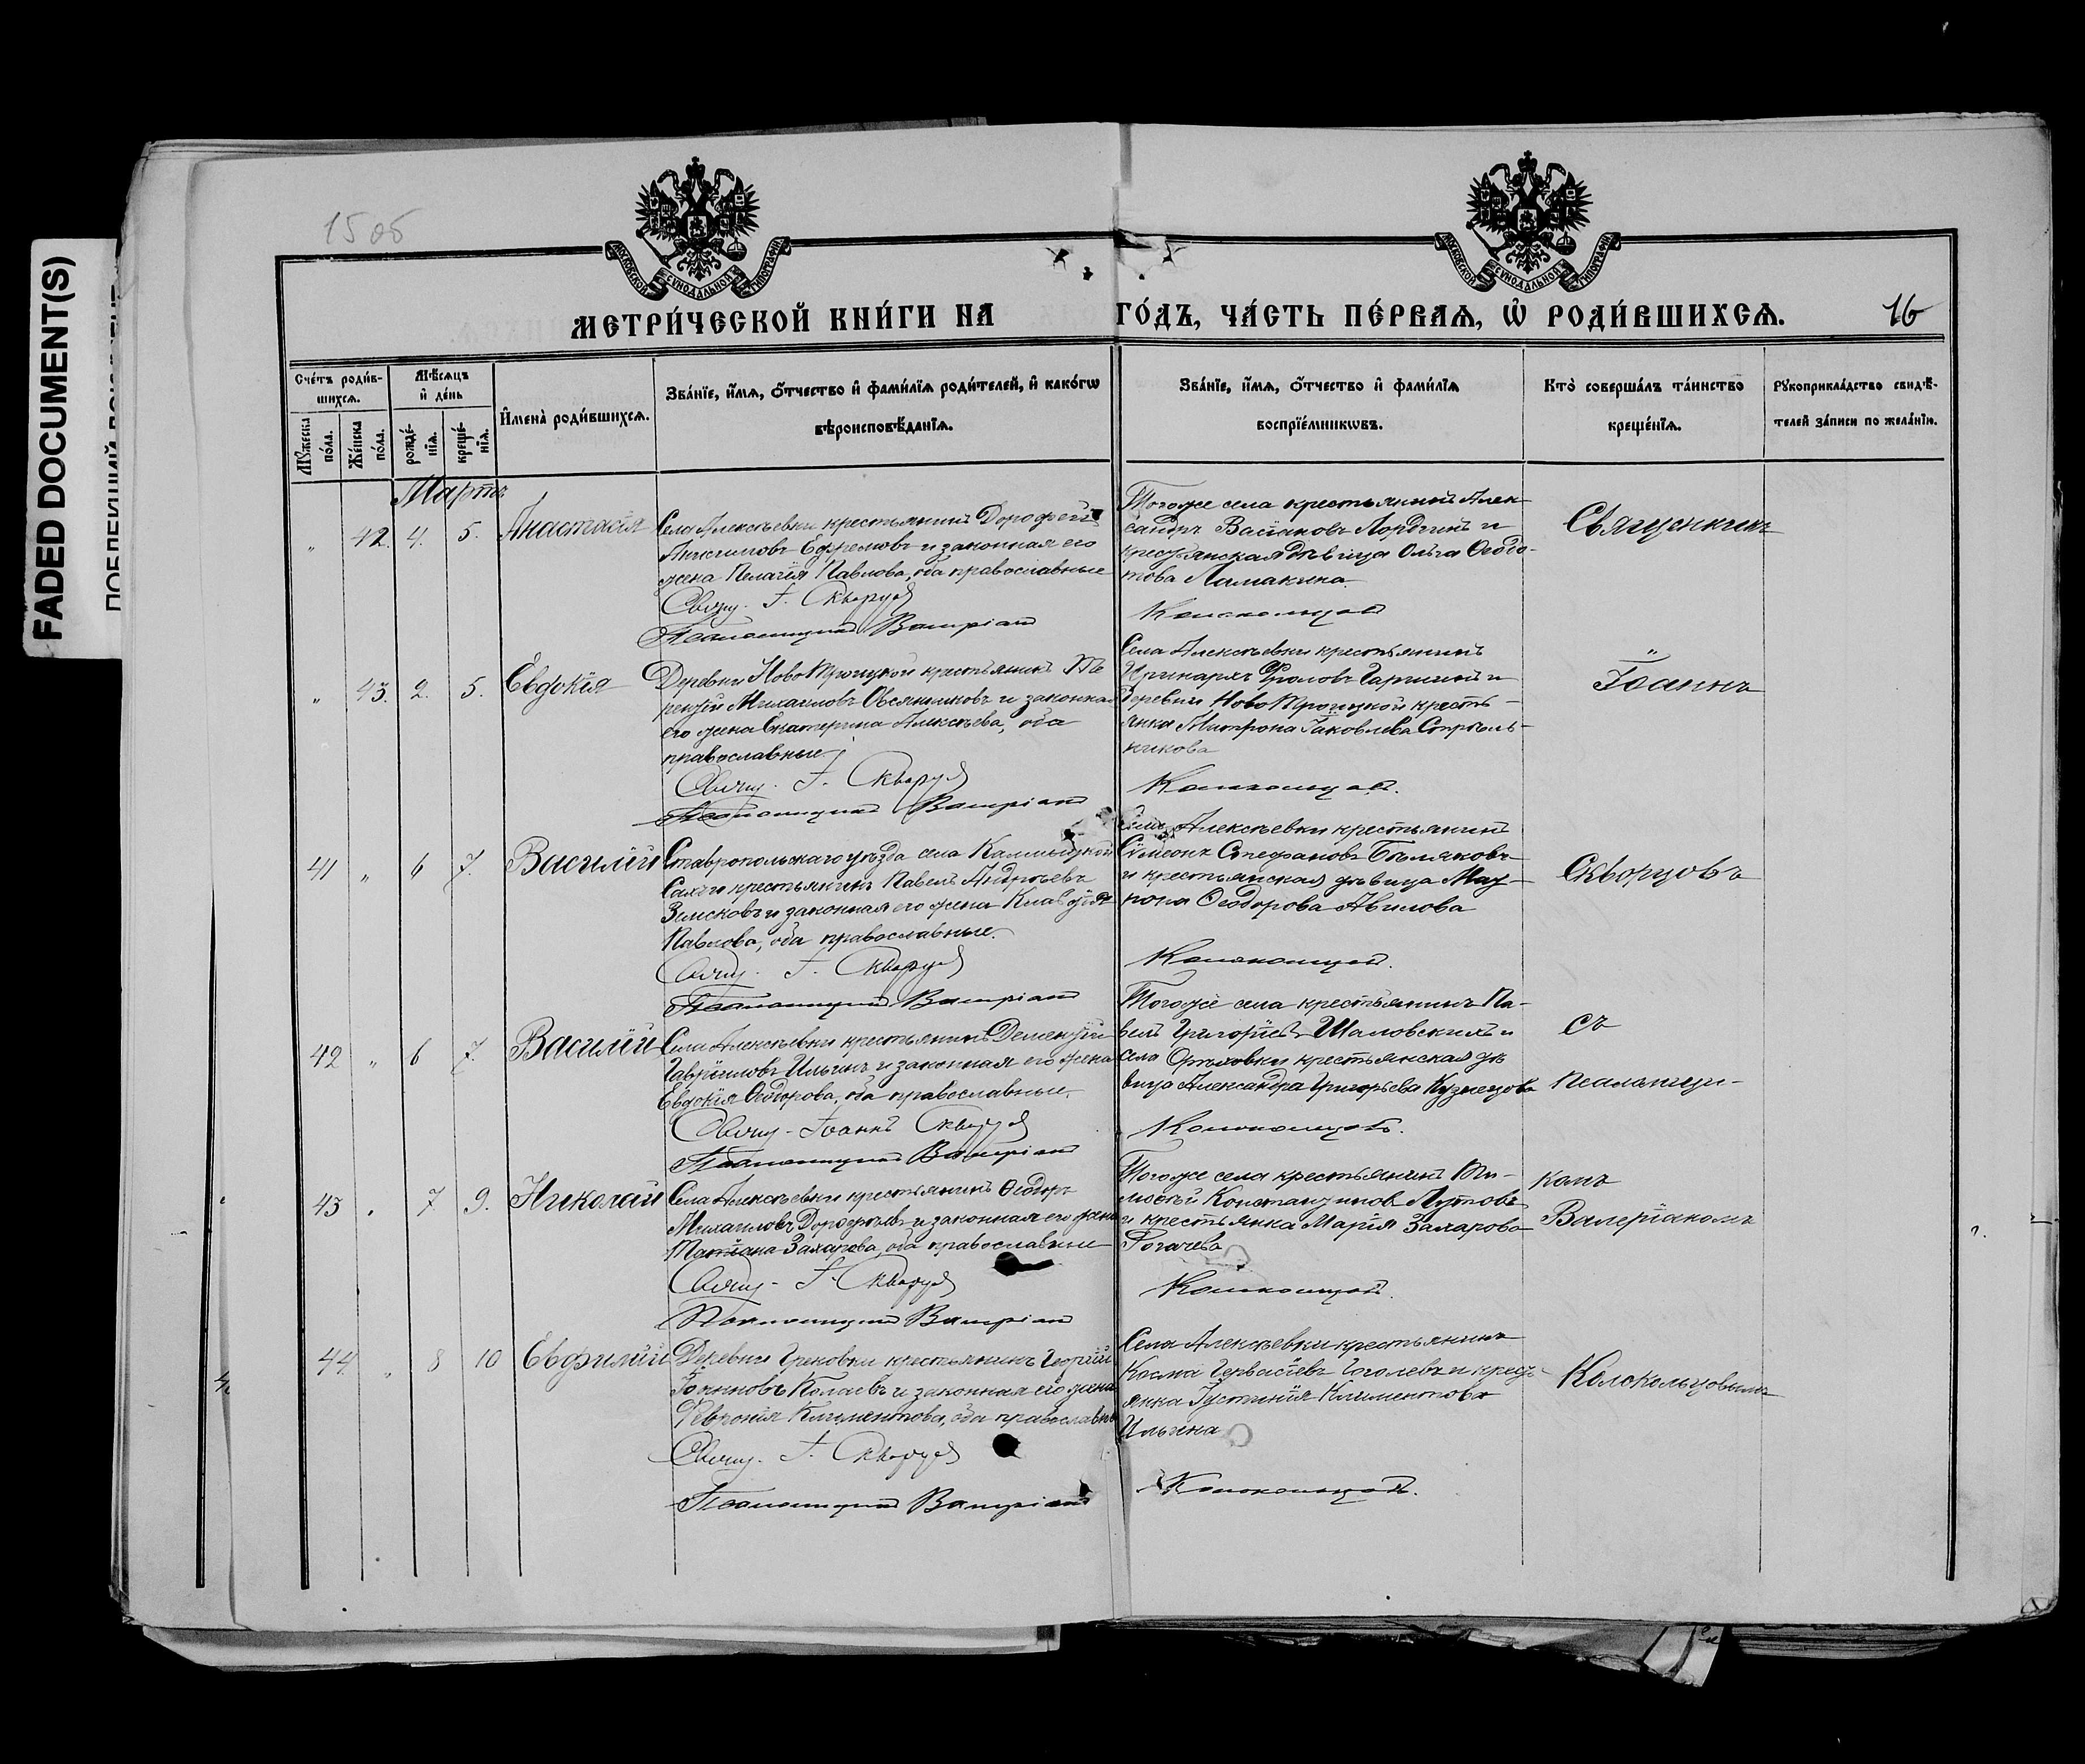 FADED DOCUMENT(S)
15 об
МОСКОВСКОЙ СѴНОДАЛЬНОЙ ТИПОГРАФІИ
МОСКОВСКОЙ СѴНОДАЛЬНОЙ ТИПОГРАФІИ
МЕТРИ́ЧЕСКОЙ КНИ́ГИ НА ГО́ДЪ, ЧА́СТЬ ПЕ́РВАѦ, Ѡ҆ РОДИ́ВШИХСѦ.
16
Сче́тъ роди́в-
шихсѧ.
Мꙋ́жеска по́ла.
Же́нска по́ла.
Мѣ́сѧцъ
и҆ де́нь
рожде́-
нїѧ.
креще́-
нїѧ.
И҆мена̀ роди́вшихсѧ.
Зва́нїе, и҆́мѧ, ѻ҆́тчество и҆ фами́лїѧ роди́телей, и҆ како́гѡ
вѣроисповѣ́данїѧ.
Зва́нїе, и҆́мѧ, ѻ҆́тчество и҆ фами́лїѧ
воспрїе́мникѡвъ.
Кто̀ соверша́лъ та́инство
креще́нїѧ.
Рꙋкоприкла́дство свидѣ́-
телей за́писи по жела́нїю.
Мартъ
" 42. 4. 5. Анастасія
Села Алексѣевки крестьянинъ Дорофей
Ефремовъ и законная его
жена Пелагія Павлова, оба православные
Свящ. І. Скворцов
Псаломщикъ Валеріан
Тогоже села крестьянинъ Алек-
сандръ и
крестьянская дѣвица Ольга Ѳедо-
това Ламакина
Колокольцов
Священникъ
" 43. 2. 5. Евдокія
Деревни Ново Троицкой крестьянинъ Те
рентій Михаиловъ Овсянниковъ и законная
его жена Екатерина Алексѣева, оба
православные.
Свящ. І. Скворцов
Псаломщикъ Валеріан
Села Алексѣевки крестьянинъ
Иринархъ Фроловъ и
деревни Ново Троицкой кресть-
янка Митрона Іаковлева Стрѣль-
никова
Колокольцов.
Іоаннъ
41 " 6 7. Василій
Ставропольскаго уѣзда села Калмыцкой
Сахчи крестьянинъ Павелъ Андреевъ
Зимсковъ и законная его жена Клавдія
Павлова, оба православные.
Свящ. І. Скворцов
Псаломщикъ Валеріан
Села Алексѣевки крестьянинъ
Сѵмеонъ Стефановъ Бѣляковъ
и крестьянская дѣвица Мат-
рона Ѳеодорова Авилова
Колокольцов.
Скворцовъ
42 " 6 7. Василій
Села Алексѣевки крестьянинъ Дементій
Гавріиловъ Ильинъ и законная его жена
Евдокія Ѳеодорова, оба православные.
Свящ. Іоаннъ Скворцов
Псаломщикъ Валеріан
Тогоже села крестьянинъ Па-
велъ Григоріевъ Шаловскихъ и
села Орѣховки крестьянская дѣ
вица Александра Григорьева Кузнецова
Колокольцовъ.
съ
псаломщи-
43 " 7 9. Николай
Села Алексѣевки крестьянинъ Ѳеодоръ
Михаиловъ Дорофѣевъ и законная его жена
Татіана Захарова, оба православные
Свящ. І. Скворцов
Псаломщикъ Валеріан
Тогоже села крестьянинъ Ти-
моѳей Константиновъ Лутовъ
и крестьянка Марія Захарова
Рогачева
Колокольцов.
комъ
Валеріаномъ
44 " 8 10 Евфимій
Деревни Грековки крестьянинъ Георгій
Іоанновъ и законная его жена
Февронія Климентова, оба православные
Свящ. І. Скворцов
Псаломщикъ Валеріан
Села Алексѣевки крестьянинъ
Косма Гервасіевъ Гоголевъ и крест-
янка Іустинія Климентова
Ильина
Колокольцов.
Колокольцовымъ